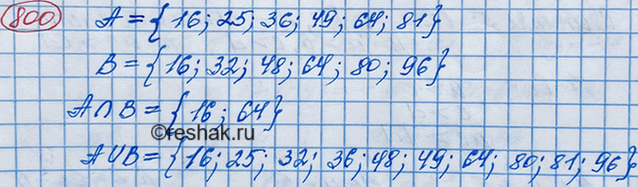 800 A = {16; 25; 36; 49; 64; 81}
B = {16; 32; 48; 64; 80; 96}
A∩B = {16; 64}
©reshak.ru
A∪B = {16; 25; 32; 36; 48; 49; 64; 80; 81; 96}